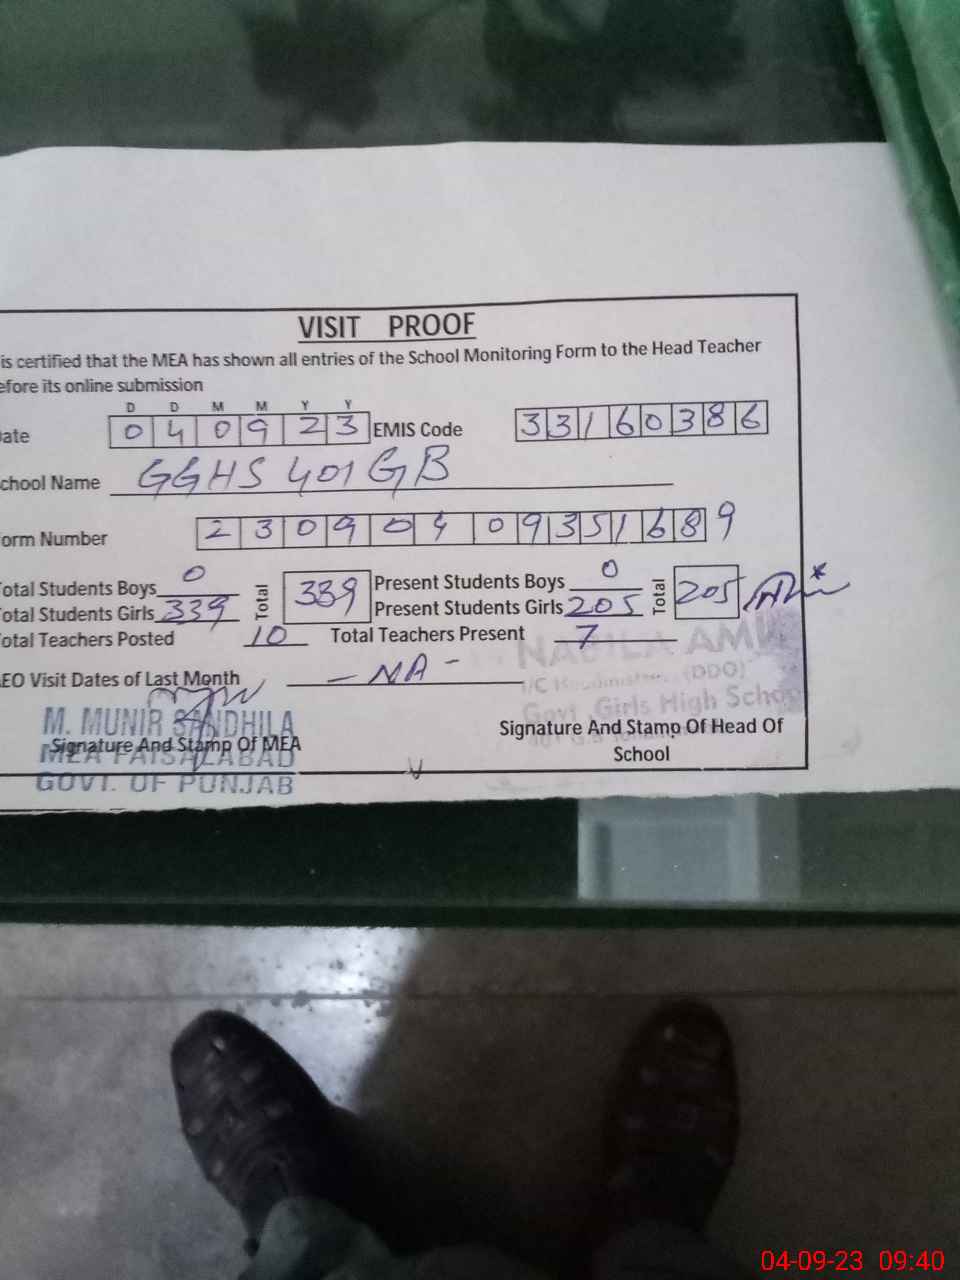 VISIT PROOF
is certified that the MEA has shown all entries of the School Monitoring Form to the Head Teacher
efore its online submission
D D M M Y Y
ate 0 4 0 9 2 3 EMIS Code 3 3 1 6 0 3 8 6
chool Name GGHS 401 GB
orm Number 2 3 0 9 0 4 0 9 3 5 1 6 8 9
otal Students Boys 0 Total 339 Present Students Boys 0 Total 205
otal Students Girls 339 Present Students Girls 205
otal Teachers Posted 10 Total Teachers Present 7
EO Visit Dates of Last Month - NA -
NABILA
I/C (DDO)
Govt. Girls High School
M. MUNIR SANDHILA
Signature And Stamp Of MEA
MEA FAISALABAD
GOVT. OF PUNJAB
Signature And Stamp Of Head Of
School
04-09-23 09:40